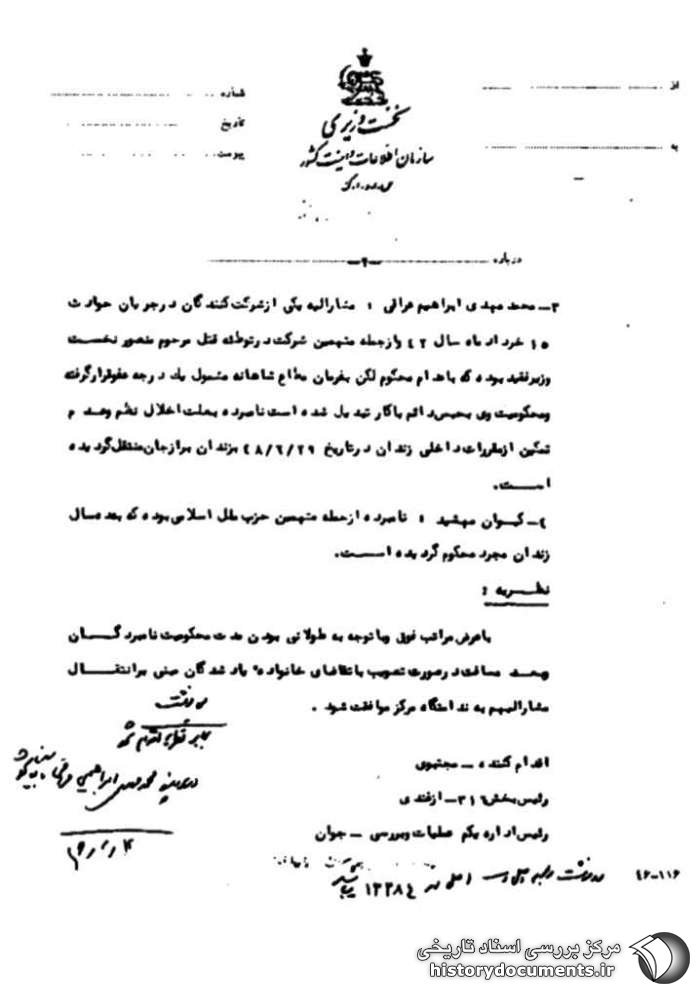 از
به
شماره
تاریخ
پیوست
نخست وزیری
سازمان اطلاعات و امنیت کشور
س.ا.و.ا.ک
درباره
-۲-
۳- محمد مهدی ابراهیم عراقی : مشارالیه یکی از شرکت کنندگان در جریان حوادث
۱۵ خرداد ماه سال ۴۲ و از جمله متهمین شرکت در توطئه قتل مرحوم منصور نخست
وزیر فقید بوده که باعدام محکوم لکن بفرمان مطاع شاهانه مشمول یک درجه عفو قرار گرفته
و محکومیت وی بحبس دائم با کار تبدیل شده است نامبرده بعلت اخلال نظم و عدم
تمکین از مقررات داخلی زندان در تاریخ ۴۸/۶/۲۹ بزندان برازجان منتقل گردیده
است.
۴- کیوان مهشید : نامبرده از جمله متهمین حزب ملل اسلامی بوده که بده سال
زندان مجرد محکوم گردیده است.
نظریه :
با عرض مراتب فوق و با توجه به طولانی بودن مدت محکومیت نامبردگان
و بعد مسافت در صورت تصویب با تقاضای خانواده یاد شدگان مبنی بر انتقال
مشارالیهم به ندامتگاه مرکز موافقت شود .
اقدام کننده - مجتهدی
رئیس بخش ۳۱۶- ازغندی
رئیس اداره یکم عملیات و بررسی - جوان
۴۶-۱۱۶
مرکز بررسی اسناد تاریخی
historydocuments.ir